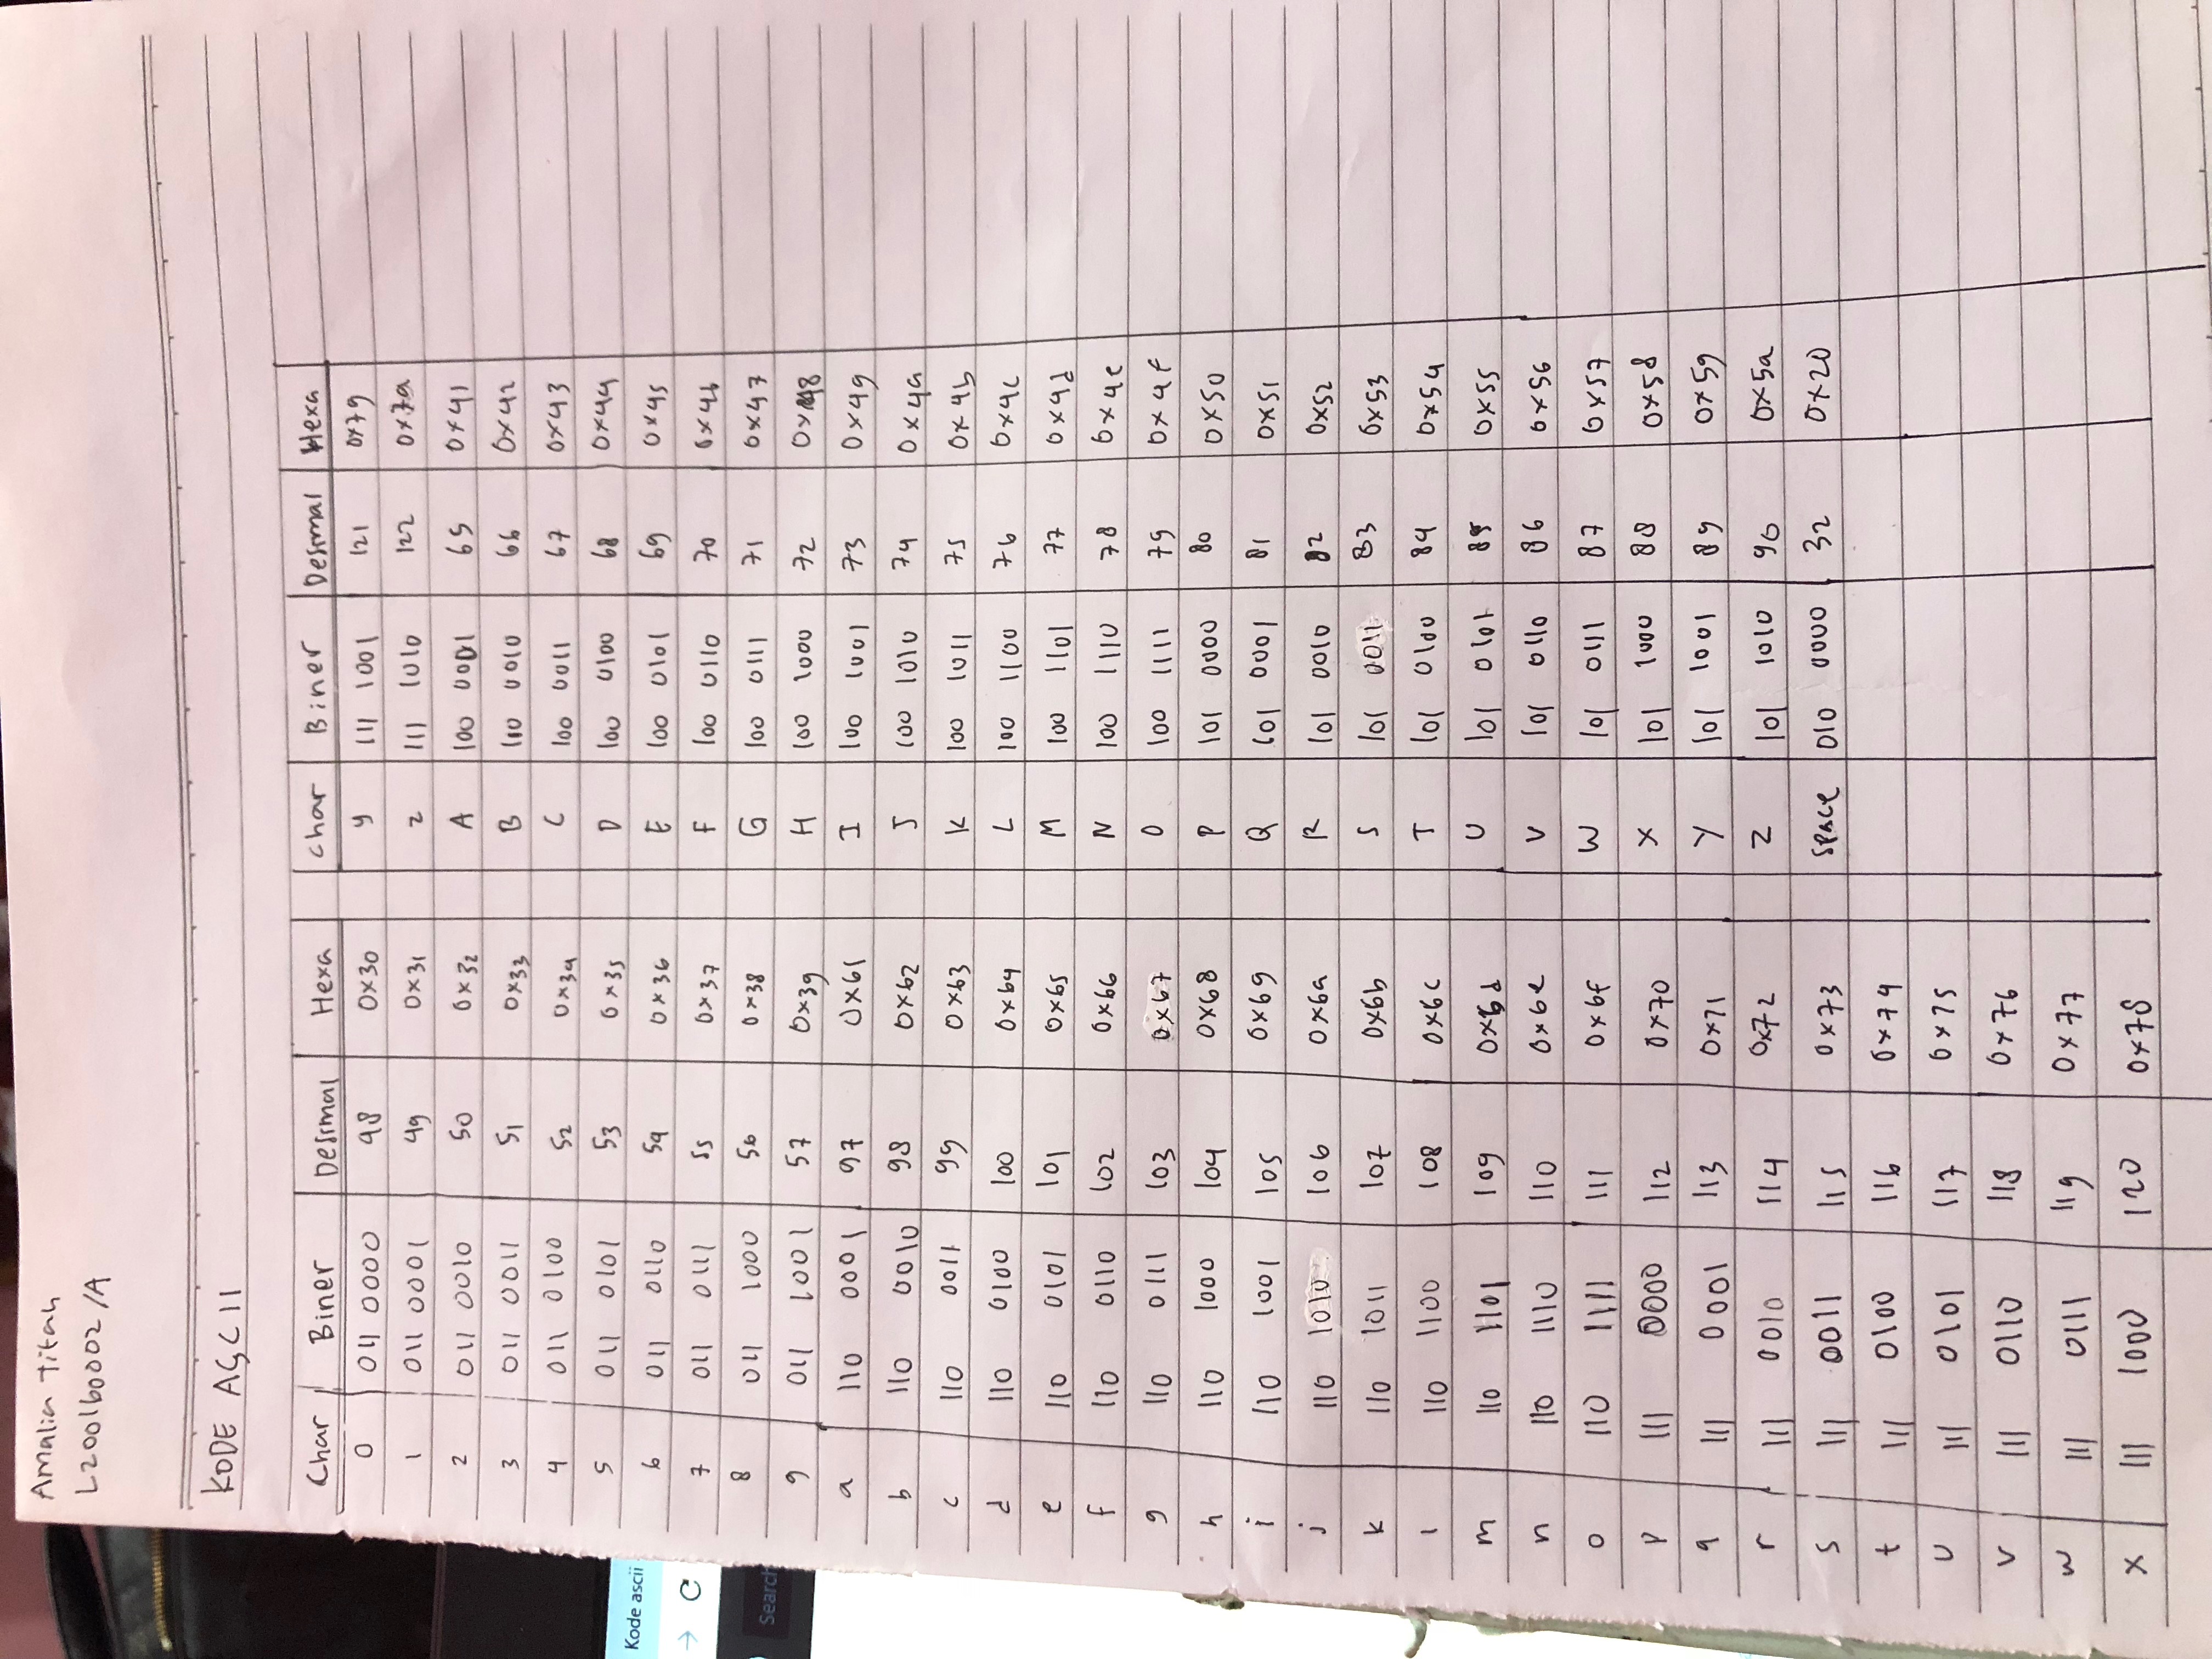 Amalia Titah
L200160002/A
KODE ASCII
Char Biner Desimal Hexa
0 011 0000 48 0x30
1 011 0001 49 0x31
2 011 0010 50 0x32
3 011 0011 51 0x33
4 011 0100 52 0x34
5 011 0101 53 0x35
6 011 0110 54 0x36
7 011 0111 55 0x37
8 011 1000 56 0x38
9 011 1001 57 0x39
a 110 0001 97 0x61
b 110 0010 98 0x62
c 110 0011 99 0x63
d 110 0100 100 0x64
e 110 0101 101 0x65
f 110 0110 102 0x66
g 110 0111 103 0x67
h 110 1000 104 0x68
i 110 1001 105 0x69
j 110 1010 106 0x6a
k 110 1011 107 0x6b
l 110 1100 108 0x6c
m 110 1101 109 0x6d
n 110 1110 110 0x6e
o 110 1111 111 0x6f
p 111 0000 112 0x70
q 111 0001 113 0x71
r 111 0010 114 0x72
s 111 0011 115 0x73
t 111 0100 116 0x74
u 111 0101 117 0x75
v 111 0110 118 0x76
w 111 0111 119 0x77
x 111 1000 120 0x78
char Biner Desimal Hexa
y 111 1001 121 0x79
z 111 1010 122 0x7a
A 100 0001 65 0x41
B 100 0010 66 0x42
C 100 0011 67 0x43
D 100 0100 68 0x44
E 100 0101 69 0x45
F 100 0110 70 0x46
G 100 0111 71 0x47
H 100 1000 72 0x48
I 100 1001 73 0x49
J 100 1010 74 0x4a
K 100 1011 75 0x4b
L 100 1100 76 0x4c
M 100 1101 77 0x4d
N 100 1110 78 0x4e
O 100 1111 79 0x4f
P 101 0000 80 0x50
Q 101 0001 81 0x51
R 101 0010 82 0x52
S 101 0011 83 0x53
T 101 0100 84 0x54
U 101 0101 85 0x55
V 101 0110 86 0x56
W 101 0111 87 0x57
X 101 1000 88 0x58
Y 101 1001 89 0x59
Z 101 1010 90 0x5a
space 010 0000 32 0x20
Kode ascii
Search